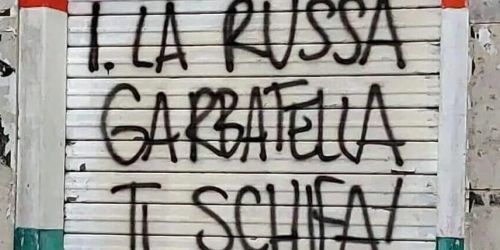 I. LA RUSSA
GARBATELLA
TI SCHIFA!